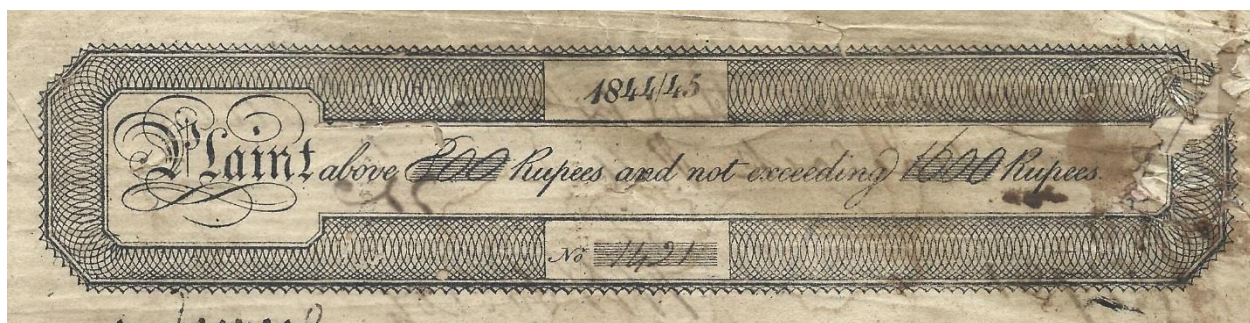 1844/45
Plaint above 800 Rupees and not exceeding 1600 Rupees.
No 1421